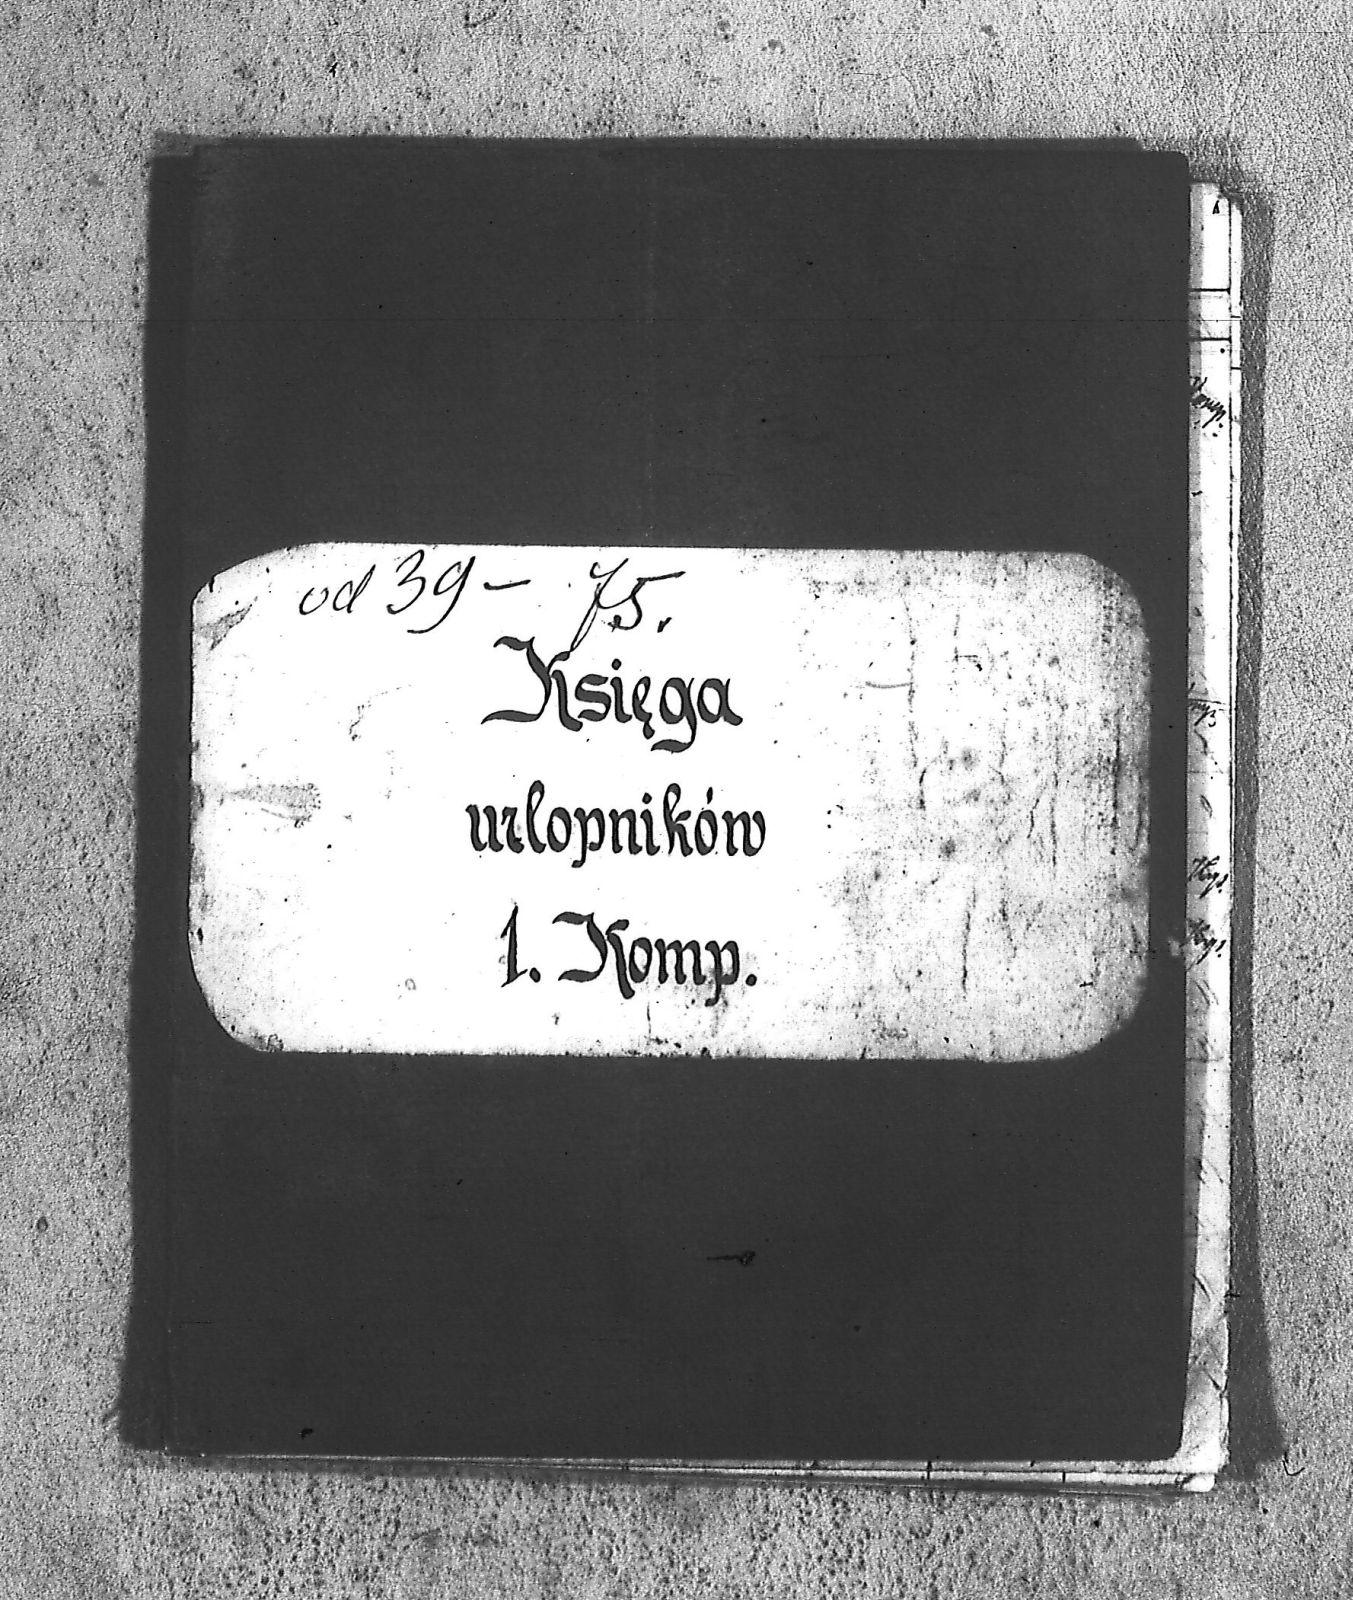 od 39 - 75.
Księga
urlopników
1. Komp.
Komp.